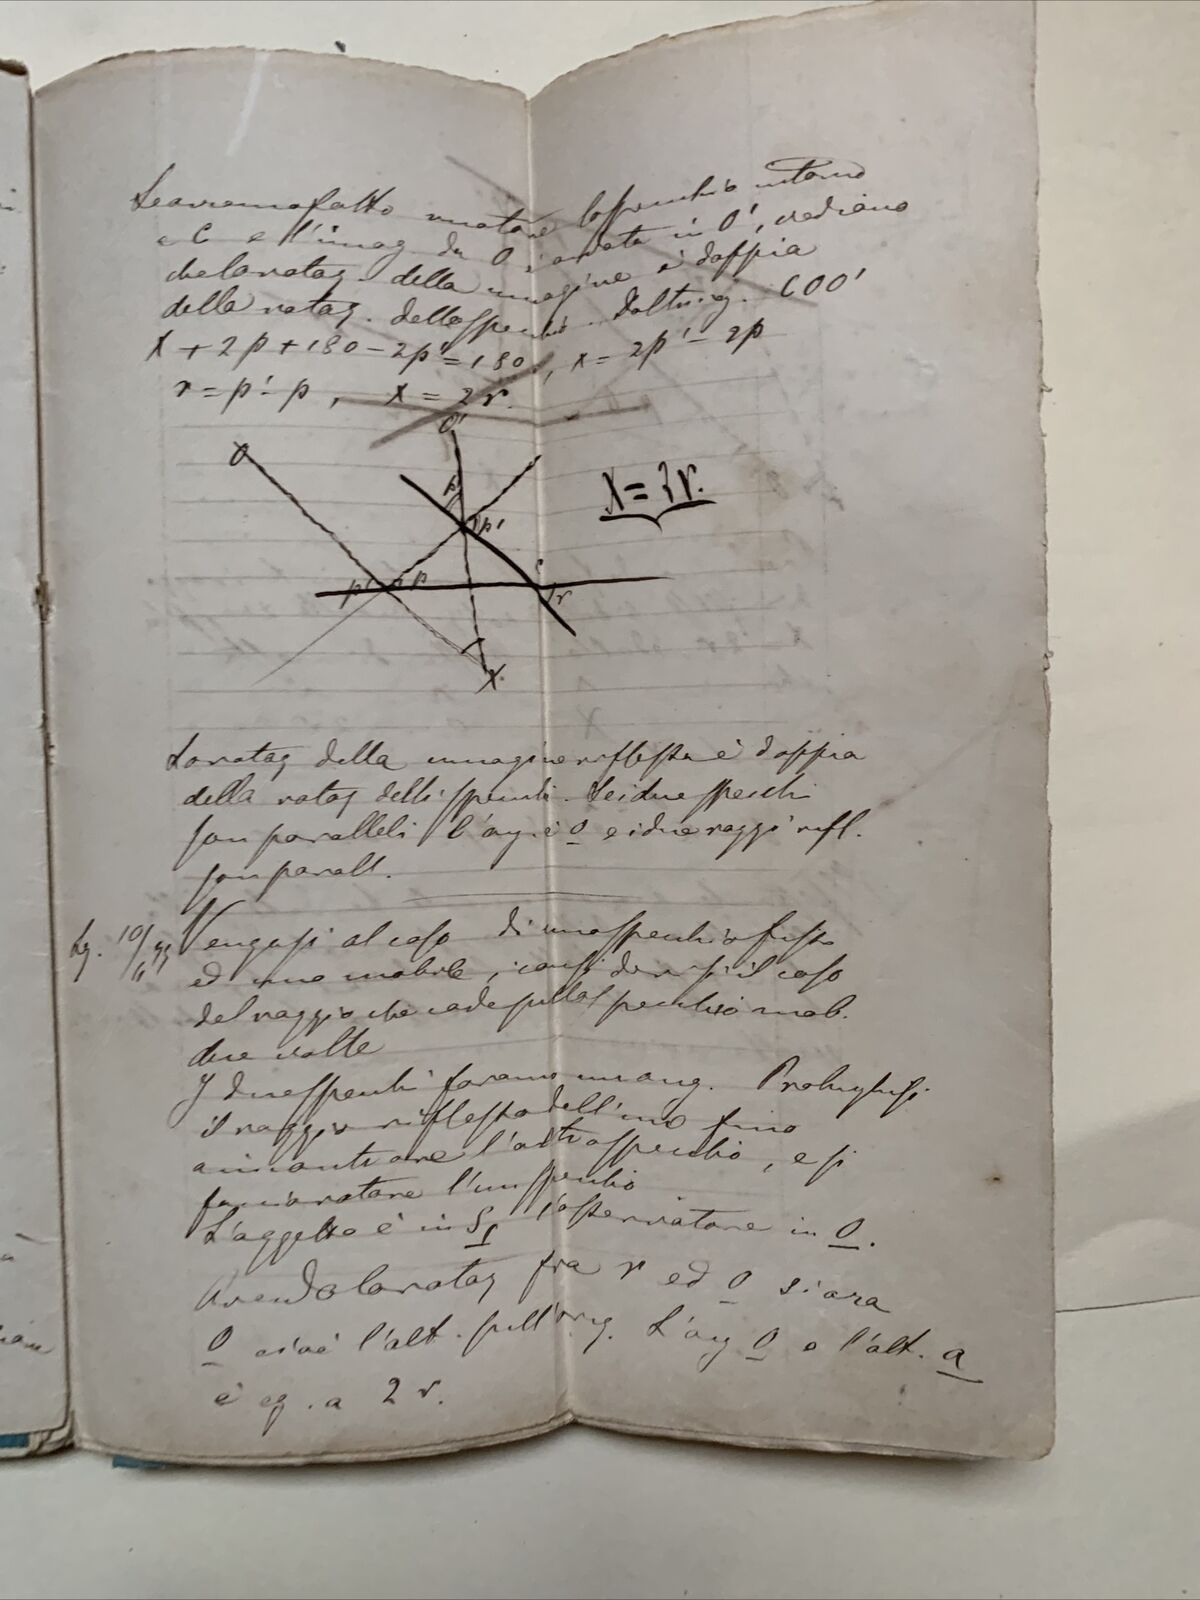 Se avremo fatto ruotare lo specchio intorno
a C e l'imag da O è andata in O', vediamo
che la rotaz. della imagine è doppia
della rotaz. dello specchio. COO'
x + 2p + 180 - 2p' = 180, x = 2p' - 2p
r = p' - p, x = 2r.
O'
O
p
p'
x = 2r.
C
p p
r
x
La rotaz della immagine riflessa è doppia
della rotaz delli specchi. Se i due specchi
son paralleli l'ang è o e i due raggi rifl.
son parall.
Lz. 10/
Vengasi al caso di uno specchio fisso
ed uno mobile, considerisi il caso
del raggio che cade sullo specchio mob.
due volte
I due specchi faranno un ang. Prolunghisi
il raggio riflesso dell'uno fino
a incontrare l'altro specchio, e si
faccia rotare l'uno specchio
L'oggetto è in S, l'osservatore in O.
Avendo la rotaz fra r ed o si avra
O cioè l'alt. sull'oriz. L'ang O o l'alt. a
è eg. a 2 r.